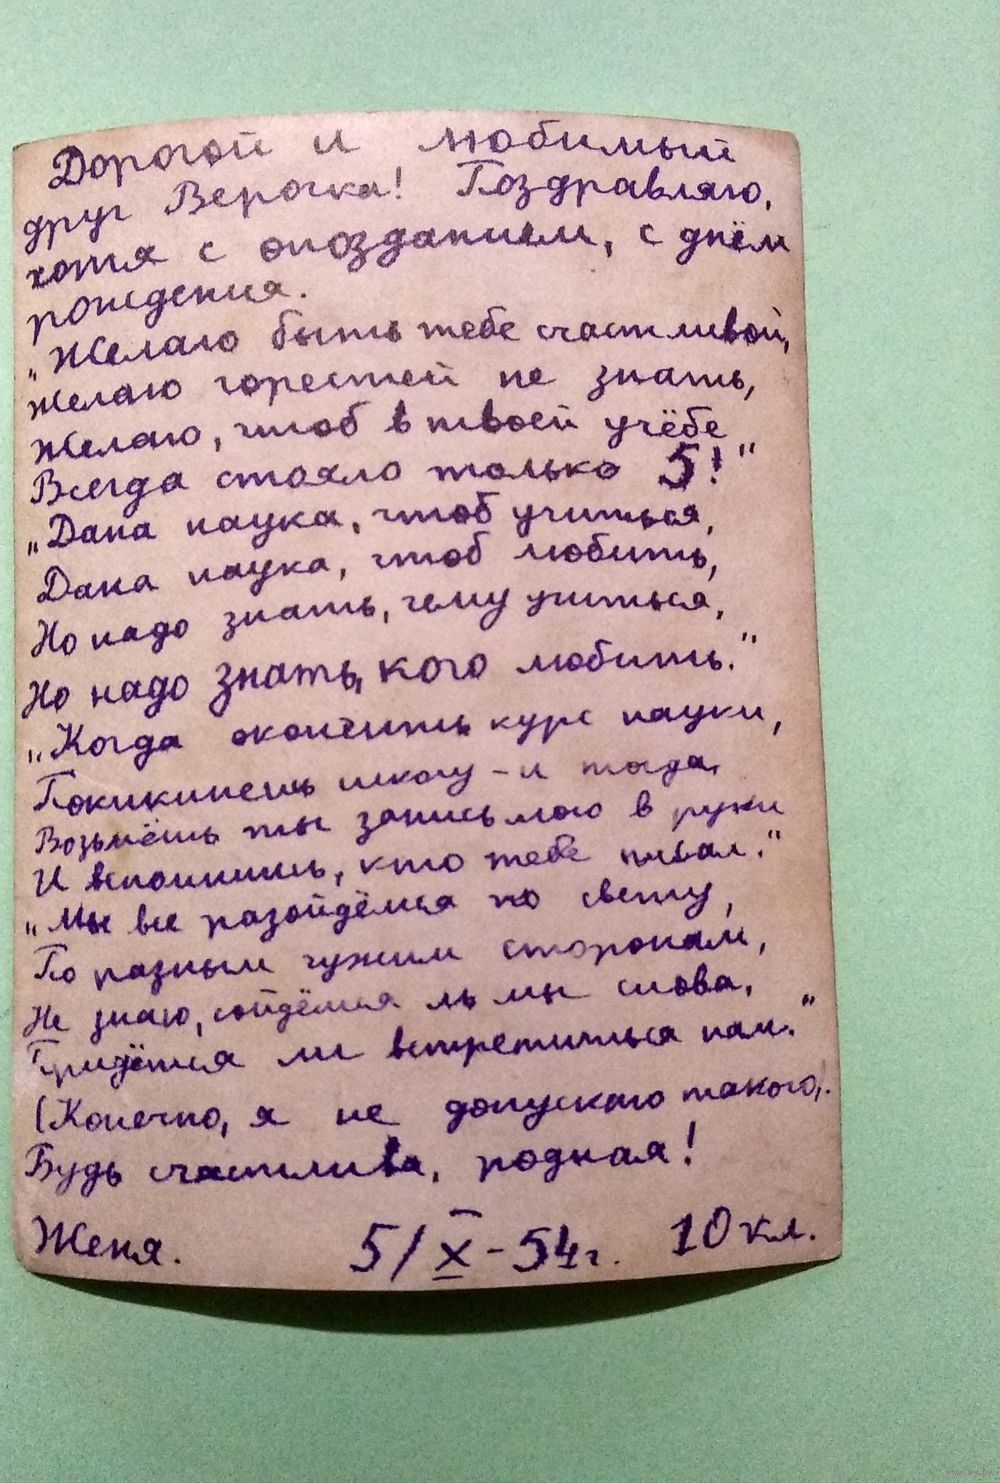 Дорогой и любимый
друг Верочка! Поздравляю,
хотя с опозданием, с днём
рождения.
"Желаю быть тебе счастливой,
Желаю горестей не знать,
Желаю, чтоб в твоей учёбе
Всегда стояло только 5!"
"Дана наука, чтоб учиться,
Дана наука, чтоб любить,
Но надо знать, чему учиться,
Но надо знать, кого любить."
"Когда окончишь курс науки,
Покикинешь школу - и тогда,
Возьмёшь ты запись мою в руки
И вспомнишь, кто тебе писал."
"Мы все разойдёмся по свету,
По разным чужим сторонам,
Не знаю, сойдёмся ль мы снова,
Придётся ли встретиться нам."
(Конечно, я не допускаю такого).
Будь счастлива, родная!
Женя. 5/X-54г. 10 кл.
www.ay.by